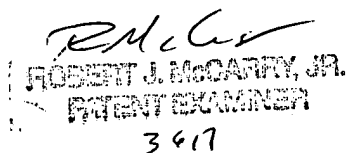 RMcCar
ROBERT J. McCARRY, JR.
PATENT EXAMINER
3617